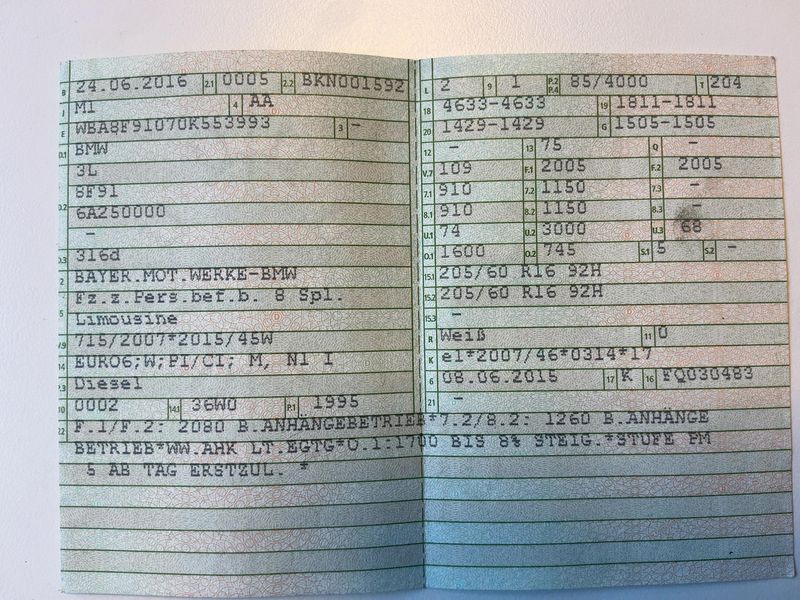 B 24.06.2016 2.1 0005 2.2 BKN001592
J M1 4 AA
E WBA8F91070K553993 3 -
D.1 BMW
3L
8F91
D.2 6A250000
-
D.3 316d
2 BAYER.MOT.WERKE-BMW
Fz.z.Pers.bef.b. 8 Spl.
5 Limousine
V.9 715/2007*2015/45W
14 EURO6;W;PI/CI; M, N1 I
P.3 Diesel
10 0002 14.1 36W0 P.1 1995
L 2 9 1 P.2 P.4 85/4000 T 204
18 4633-4633 19 1811-1811
20 1429-1429 G 1505-1505
12 - 13 75 Q -
V.7 109 F.1 2005 F.2 2005
7.1 910 7.2 1150 7.3 -
8.1 910 8.2 1150 8.3 -
U.1 74 U.2 3000 U.3 68
O.1 1600 O.2 745 S.1 5 S.2 -
15.1 205/60 R16 92H
15.2 205/60 R16 92H
15.3 -
R Weiß 11 0
K e1*2007/46*0314*17
6 08.06.2015 17 K 16 FQ030483
21 -
22 F.1/F.2: 2080 B.ANHÄNGEBETRIEB*7.2/8.2: 1260 B.ANHÄNGE
BETRIEB*WW.AHK LT.EGTG*O.1:1700 BIS 8% STEIG.*STUFE PM
5 AB TAG ERSTZUL. *